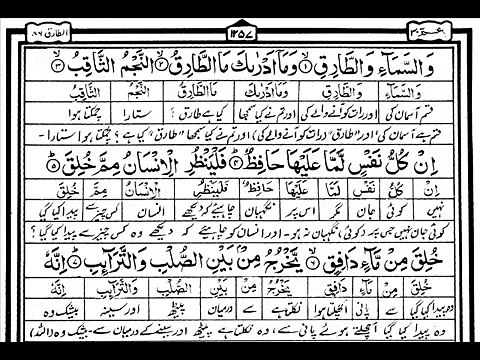 الطارق ٨٦ ١٢٥٧ عم ٣٠
وَالسَّمَآءِ وَالطَّارِقِ ۙ﴿۱﴾ وَمَآ اَدْرٰىكَ مَا الطَّارِقُ ۙ﴿۲﴾ النَّجْمُ الثَّاقِبُ ۙ﴿۳﴾
وَالسَّمَآءِ وَالطَّارِقِ وَمَآ اَدْرٰىكَ مَا الطَّارِقُ النَّجْمُ الثَّاقِبُ
قسم آسمان کی اور رات کو آنے والے کی اور تم نے کیا سمجھا کیا ہے طارق؟ ستارا چمکتا ہوا
قسم ہے آسمان کی اور "طارق" (رات کو آنے والے کی)، اور تم نے کیا سمجھا "طارق" کیا ہے؟ چمکتا ہوا ستارا۔
اِنْ كُلُّ نَفْسٍ لَّمَّا عَلَيْهَا حَافِظٌ ؕ﴿۴﴾ فَلْيَنْظُرِ الْاِنْسَانُ مِمَّ خُلِقَ ؕ﴿۵﴾
اِنْ كُلُّ نَفْسٍ لَّمَّا عَلَيْهَا حَافِظٌ فَلْيَنْظُرِ الْاِنْسَانُ مِمَّ خُلِقَ
نہیں کوئی جان مگر اس پر نگہبان چاہیے کہ دیکھے انسان کس چیز سے پیدا کیا گیا
کوئی جان نہیں جس پر (کوئی) نگہبان نہ ہو۔ اور انسان کو چاہیے کہ دیکھے وہ کس چیز سے پیدا کیا گیا؟
خُلِقَ مِنْ مَّآءٍ دَافِقٍ ۙ﴿۶﴾ يَّخْرُجُ مِنْۢ بَيْنِ الصُّلْبِ وَالتَّرَآئِبِ ؕ﴿۷﴾ اِنَّهٗ
خُلِقَ مِنْ مَّآءٍ دَافِقٍ يَّخْرُجُ مِنْ بَيْنِ الصُّلْبِ وَالتَّرَآئِبِ اِنَّهٗ
وہ پیدا کیا گیا سے پانی اچھلتا ہوا نکلتا ہے سے درمیان پیٹھ اور سینہ بیشک وہ
وہ پیدا کیا گیا اچھلتے ہوئے پانی سے، وہ نکلتا ہے پیٹھ اور سینے کے درمیان سے۔ بیشک وہ (اللہ)